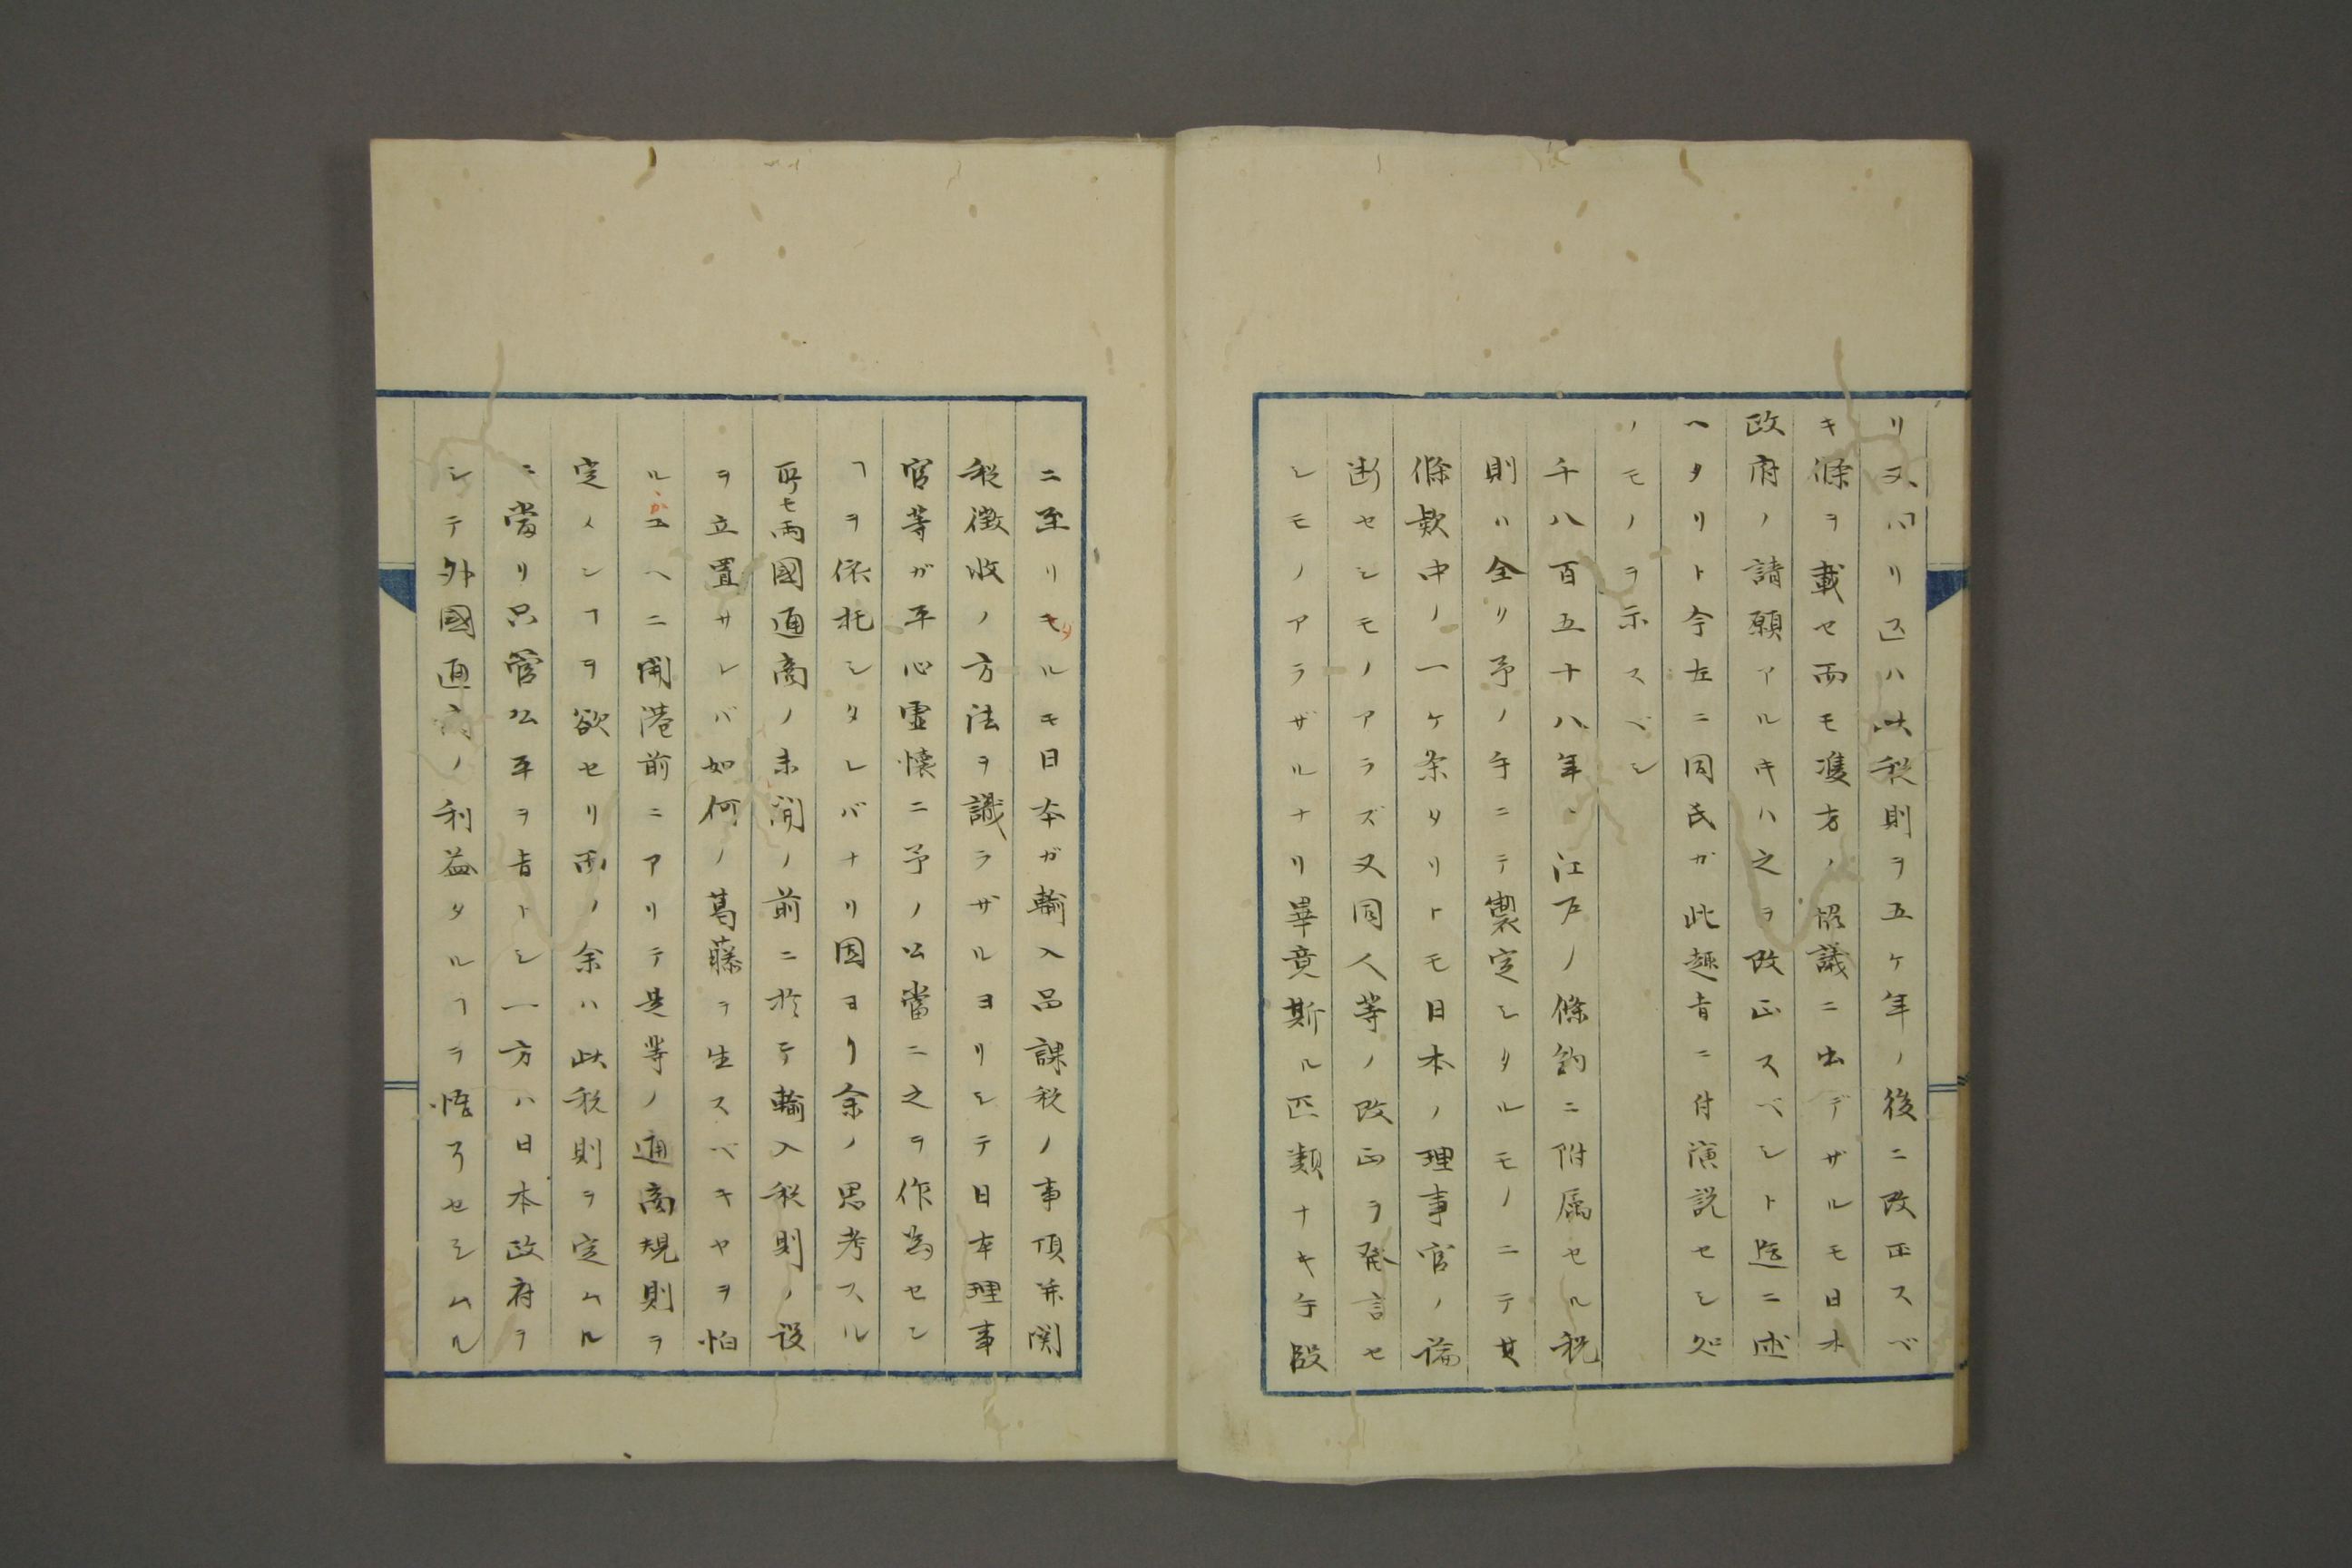 リ又ハリスハ此税則ヲ五ケ年ノ後ニ改正スベ
キ條ヲ載セ而モ雙方ノ協議ニ出デザルモ日本
政府ノ請願アルキハ之ヲ改正スベシト迄ニ述
ヘタリト今左ニ同氏ガ此趣旨ニ付演説セシ処
ノモノヲ示スベシ
千八百五十八年、江戸ノ條約ニ附属セル税
則ハ全リ予ノ手ニテ製定シタルモノニテ其
條款中ノ一ケ条タリトモ日本ノ理事官ノ論
断セシモノアラズ又同人等ノ改正ヲ発言セ
シモノアラザルナリ畢竟斯ル匹類ナキ手段
ニ至リタルモ日本ガ輸入品課税ノ事項并関
税徴收ノ方法ヲ識ラザルヨリシテ日本理事
官等ガ平心虚懐ニ予ノ公當ニ之ヲ作為セン
ヿヲ依托シタレバナリ因ヨリ余ノ思考スル
所モ両國通商ノ未開ノ前ニ於テ輸入税則ノ設
ヲ立置サレバ如何ノ葛藤ヲ生スベキヤヲ怕
ルヽユヘニ開港前ニアリテ是等ノ通商規則ヲ
定メンヿヲ欲セリ而ノ余ハ此税則ヲ定ムル
ニ當リ只管公平ヲ旨トシ一方ハ日本政府ヲ
シテ外國通商ノ利益タルヿヲ悟ラセシムル